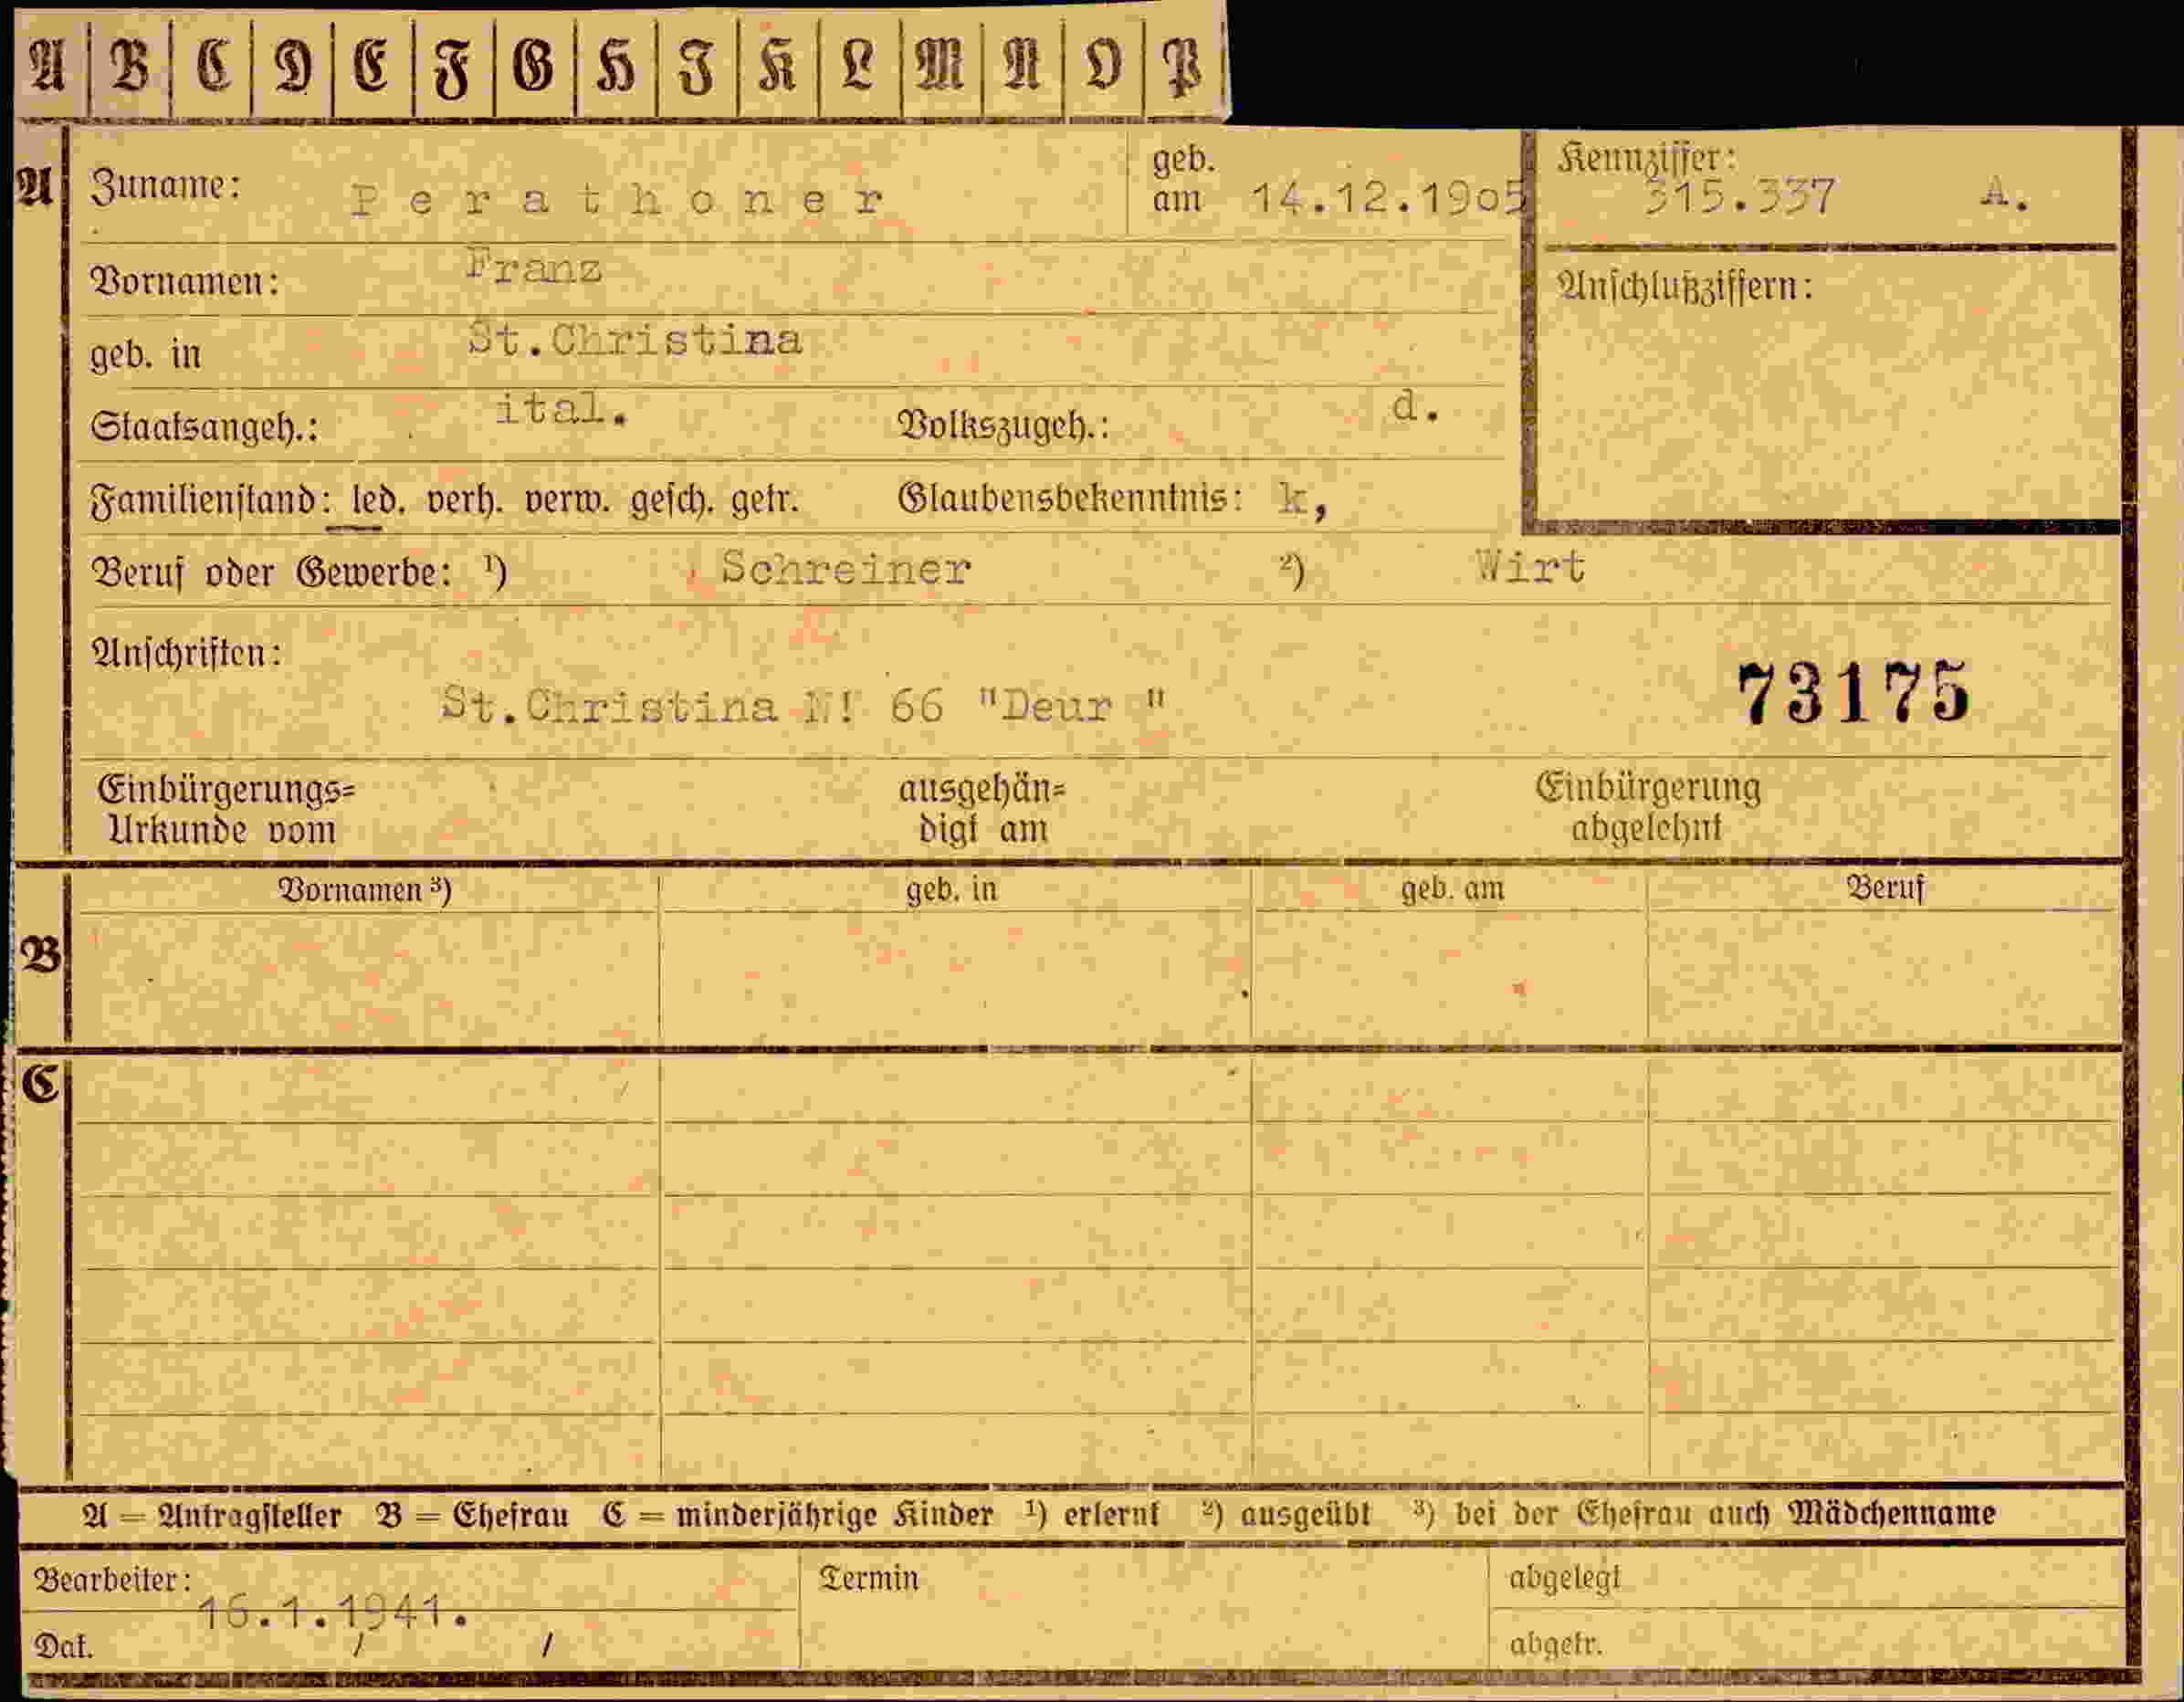 A B C D E F G H J K L M N O P
A Zuname: Perathoner geb. am 14.12.1905 Kennziffer: 315.337 A.
Vornamen: Franz Anschlußziffern:
geb. in St.Christina
Staatsangeh.: ital. Volkszugeh.: d.
Familienstand: led. verh. verw. gesch. getr. Glaubensbekenntnis: k,
Beruf oder Gewerbe: ¹) Schreiner ²) Wirt
Anschriften:
St.Christina N! 66 "Deur " 73175
Einbürgerungs= ausgehän= Einbürgerung
Urkunde vom digt am abgelehnt
Vornamen ³) geb. in geb. am Beruf
B
C
A = Antragsteller B = Ehefrau C = minderjährige Kinder ¹) erlernt ²) ausgeübt ³) bei der Ehefrau auch Mädchenname
Bearbeiter: Termin abgelegt
16.1.1941.
Dat. / / abgetr.